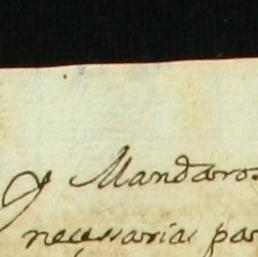 y Mandaros
necessarias par